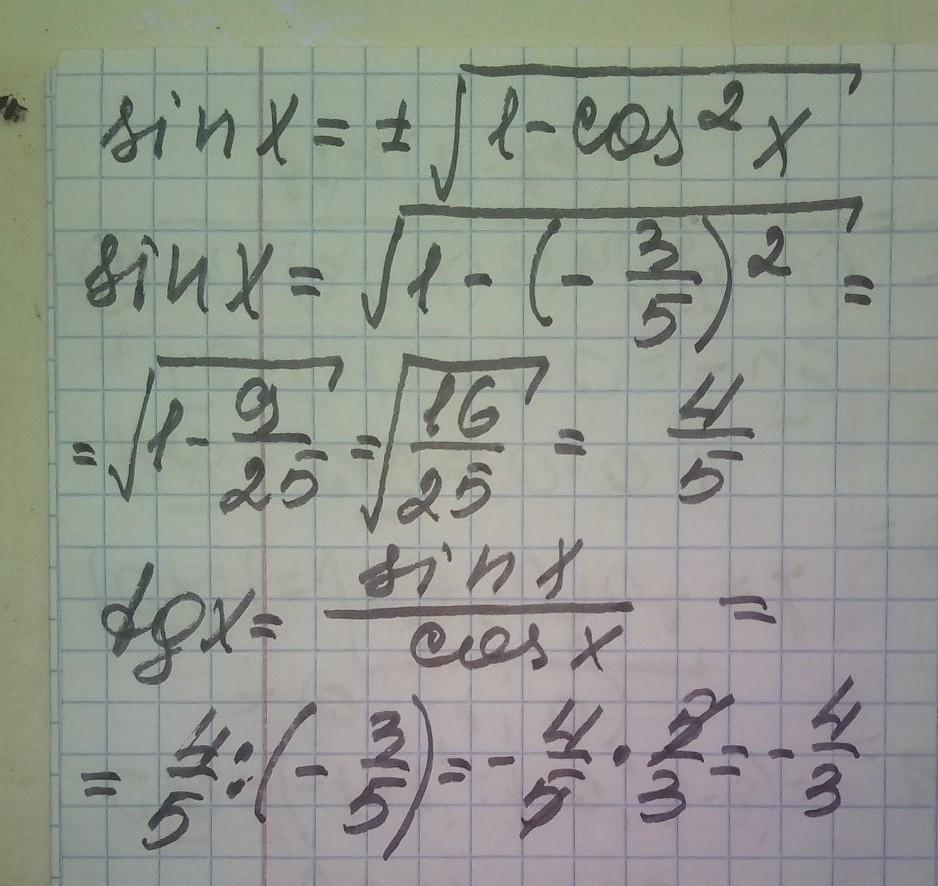 sin x = ± √(1 - cos² x)
sin x = √(1 - (- 3/5)²) =
= √(1 - 9/25) = √(16/25) = 4/5
tg x = sin x / cos x =
= 4/5 : (- 3/5) = - 4/5 · 5/3 = - 4/3